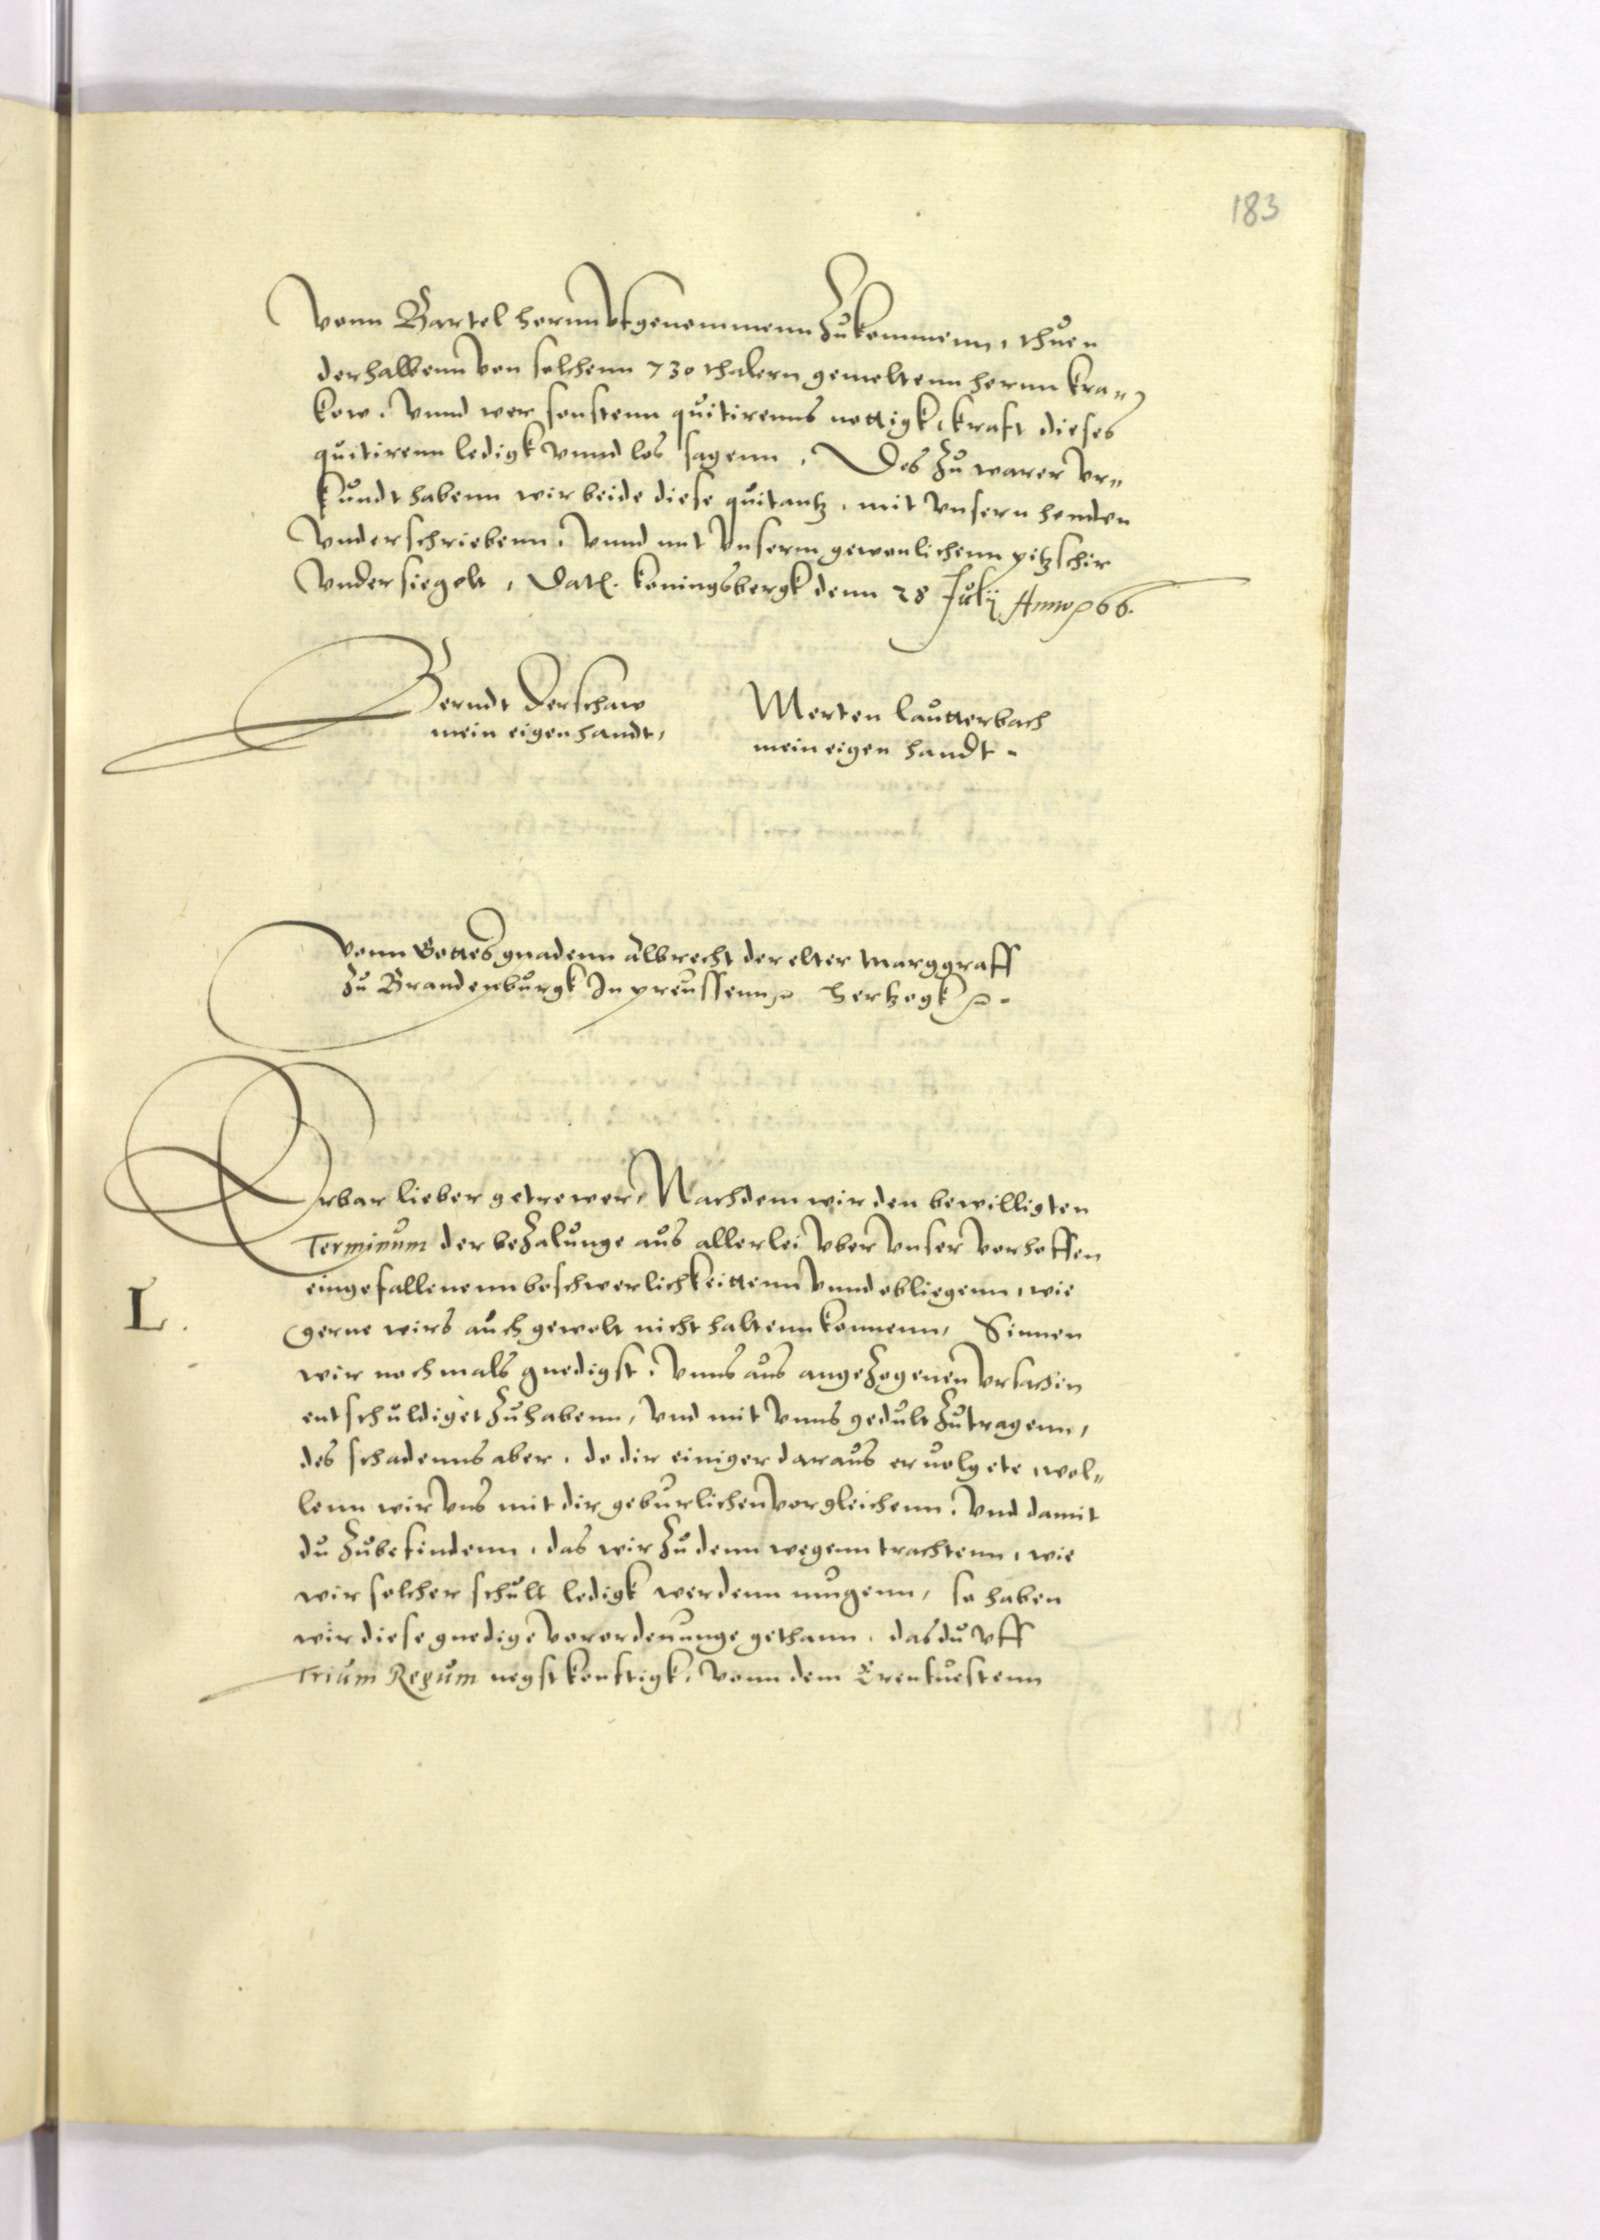 183
Vonn Bartel hornn Vfgenommenn Zukommenn, thuen
derhalbenn von solchenn 730 thalern gemeltenn hernn kra„
kow, Vnnd wer sonstenn quitirenns nottigk, kraft dieses
quitirenn ledigk vnnd los sagenn, Des Zu warer vr„
kundt habenn wir beide diese quitantz, mit vnsern henden
Vnderschriebenn, Vnnd mit Vnserm gewonlichenn pitzschir
Vndersiegelt, Dat. koningsbergk denn 28 Julij Anno 66.
Berndt Derschaw
mein eigen handt,
Merten lautterbach
mein eigen handt.
Vonn Gottes gnadenn albrecht der elter Marggraff
Zu Brandenburgk In preussenn hertzogk
Erbar lieber getrewer, Nachdem wir den bewilligten
Terminum der beZalunge aus allerlei vber Vnser verhoffen
eingefallenenn beschwerlichkeittenn Vnnd obliegenn, wie
L.
gerne wirs auch gewolt nicht haltenn konnenn, Sinnen
wir nochmals gnedigst, Vnns aus angeZogenen Vrsachen
entschuldiget Zuhabenn, Vnd mit Vnns gedult Zutragenn,
des schadenns aber, do dir einiger daraus eruolgete, wol„
lenn wir Vns mit dir geburlichen vorgleichenn, Vnd damit
du Zubefindenn, das wir Zu denn wegenn trachtenn, wie
wir solcher schult ledigk werdenn mugenn, so haben
wir diese gnedige Verordenunge gethann, das du Vff
Trium Regum negst konftigk, Vonn dem Erenfuestenn